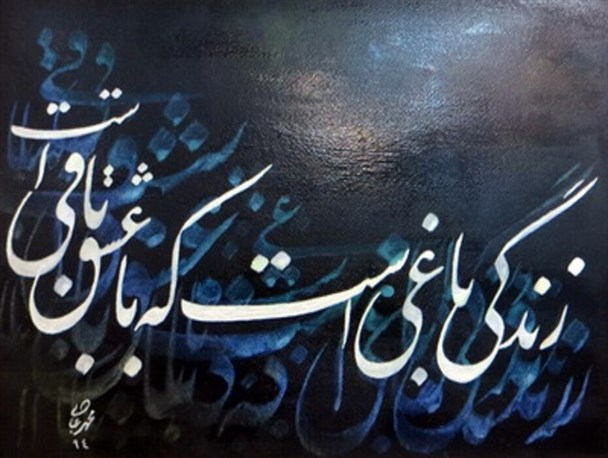 زندگی باغی است که با عشق باقی است
۹۴